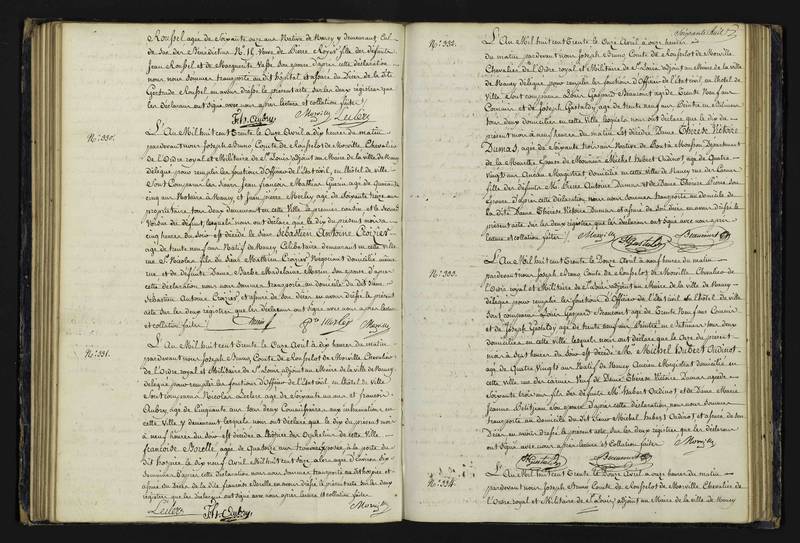 Roussel agée de Soixante onze ans Native de Nancy y demeurant Cul
de Sac des Bénédictins No. 15 Veuve de Pierre Royer fille des défunts
Jean Roussel et de Marguerite son épouse d'après cette déclaration
nous nous sommes transporté au dit hôpital et assuré du Décès de la dite
Gertrude Roussel en avons dressé le présent acte sur les deux régistres que
les déclarans ont signé avec nous après lecture et collation faites
No. 330.
L'An Mil huit cent Trente le Onze Avril à dix heures du matin
pardevant nous Joseph Bruno Comte de Rousselot de Morville, Chevalier
de l'Ordre royal et Militaire de St. Louis adjoint au Maire de la ville de Nancy
délégué pour remplir les fonctions d'Officier de l'Etat civil, en l'hôtel de ville
Sont Comparus les Sieurs Jean françois Mathieu agé de Quarante
cinq ans Notaire à Nancy et Jean pierre Merley agé de Soixante treize ans
propriétaire tous deux demeurant en cette Ville le premier cousin et le second
du défunt lesquels nous ont déclaré que le dix du présent mois à
cinq heures du soir est décédé le Sieur Sébastien Antoine Croizier
agé de trente neuf ans Natif de Nancy Célibataire demeurant en cette ville
rue St. Nicolas fils du Sieur Mathieu Croizier Négociant domicilié même
rue et de défunte Dame Barbe Madelaine Morin son épouse d'après
cette déclaration nous nous sommes transporté au domicile du dit Sieur
Sébastien Antoine Croizier et assuré de son Décès en avons dressé le présent
acte sur les deux régistres que les déclarans ont signé avec nous après lecture
et collation faites
No. 331.
L'An Mil huit cent Trente le Onze Avril à dix heures du matin
pardevant nous Joseph Bruno Comte de Rousselot de Morville Chevalier
de l'Ordre royal et Militaire de St. Louis adjoint au Maire de la ville de Nancy
délégué pour remplir les fonctions d'Officier de l'Etat civil en l'hôtel de Ville
Sont comparus Nicolas Leclerc agé de Soixante ans et françois
Aubry agé de Cinquante ans tous deux Commissaires aux inhumations en
cette Ville y demeurant lesquels nous ont déclaré que le dix du présent mois
à neuf heures du soir est décédée à l'hospice des Orphelins de cette Ville
françoise Borelle agée de Quatorze ans trouvée exposée à la porte du
dit hospice le dix neuf Avril Mil huit cent Seize, alors agée d'environ dix
semaines d'après cette déclaration nous nous sommes transporté au dit hospice et
assuré du Décès de la dite françoise Borelle en avons dressé le présent acte sur les deux
régistres que les déclarans ont signé avec nous après lecture et collation faites
Leclerc
Soixante huit
No. 332.
L'An Mil huit cent Trente le Onze Avril à onze heures
du matin pardevant nous Joseph Bruno Comte de Rousselot de Morville
Chevalier de l'Ordre royal et Militaire de St. Louis adjoint au Maire de la ville
de Nancy délégué pour remplir les fonctions d'Officier de l'Etat civil en l'hôtel de
Ville Sont comparus Louis Gaspard Beaucourt agé de Trente Neuf ans
Commis et de Joseph Gastaldy agé de trente neuf ans Peintre en bâtimens
tous deux domiciliés en cette ville lesquels nous ont déclaré que le dix du
présent mois à neuf heures du matin est décédée Dame Thérèse Victoire
Dumas, agée de Soixante trois ans Native de Pont à Mousson Département
de la Meurthe Epouse de Monsieur Michel Hubert Oudinot agé de Quatre
Vingts ans Ancien Magistrat domicilié en cette ville de Nancy rue des Carmes
fille des défunts Mr. Pierre Antoine Dumas et de Dame Thérèse Pierre son
Epouse d'après cette déclaration nous nous sommes transporté au domicile de
la dite Dame Thérèse Victoire Dumas et assuré de son décès en avons dressé le
présent acte sur les deux régistres que les déclarans ont signé avec nous après
lecture et collation faites
No. 333.
L'An Mil huit cent Trente le Douze Avril à neuf heures du matin
pardevant nous Joseph Bruno Comte de Rousselot de Morville Chevalier de
l'Ordre royal et Militaire de St. Louis adjoint au Maire de la ville de Nancy
délégué pour remplir les fonctions d'Officier de l'Etat civil en l'hôtel de ville
Sont comparus Louis Gaspard Beaucourt agé de Trente Neuf ans Commis
et de Joseph Gastaldy agé de trente neuf ans Peintre en bâtimens tous deux
domiciliés en cette ville, lesquels nous ont déclaré que le Onze du présent
mois à sept heures du soir est décédé Mr. Michel Hubert Oudinot
agé de Quatre Vingts ans Natif de Nancy Ancien Magistrat domicilié en
cette ville rue des Carmes Veuf de Dame Thérèse Victoire Dumas agée de
Soixante trois ans fils des défunts Mr. Hubert Oudinot et de Dame Marie
Jeanne son Epouse d'après cette déclaration nous nous sommes
transporté au domicile du dit Sieur Michel Hubert Oudinot et assuré de son
Décès en avons dressé le présent acte sur les deux régistres que les déclarans
ont signé avec nous après lecture et Collation faites
No. 334.
L'An Mil huit cent Trente le Douze Avril à onze heures du matin
pardevant nous Joseph Bruno Comte de Rousselot de Morville Chevalier de
l'Ordre royal et Militaire de St. Louis adjoint au Maire de la ville de Nancy